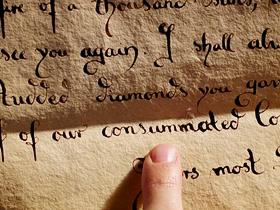 of a thousand
see you again. I shall
studded diamonds you
of our consummated
rs most